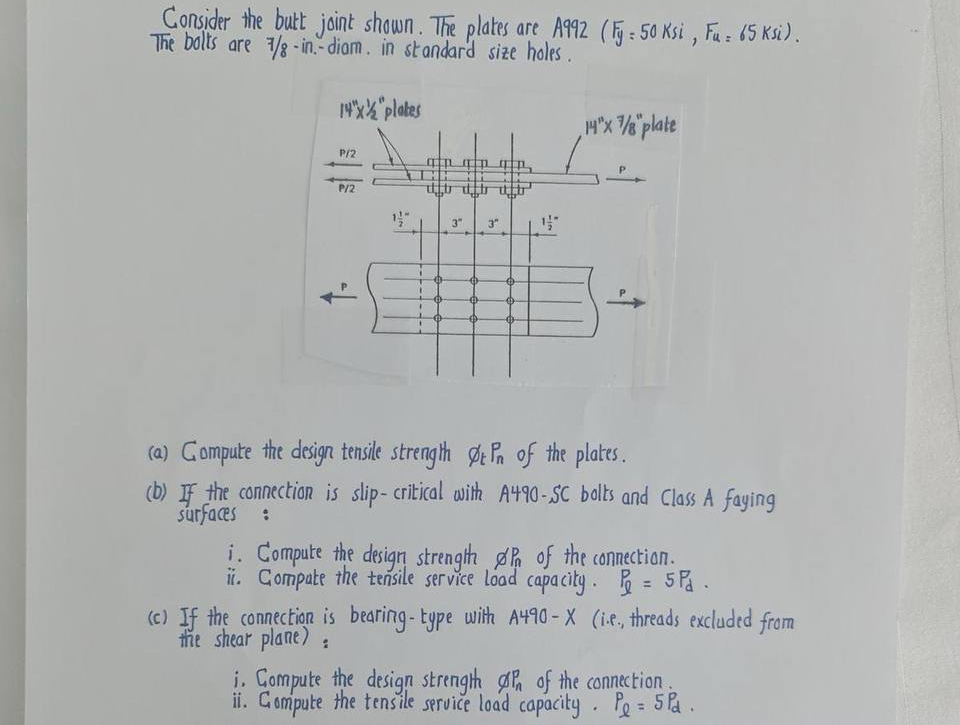 Consider the butt joint shown. The plates are A992 (Fy = 50 Ksi, Fu = 65 Ksi).
The bolts are 7/8-in.-diam. in standard size holes.
14"x½" plates
14"x 7/8" plate
P/2
P
P/2
1½" 3" 3" 1½"
P
P
(a) Compute the design tensile strength ØtPn of the plates.
(b) If the connection is slip-critical with A490-SC bolts and Class A faying
surfaces :
i. Compute the design strength ØPn of the connection.
ii. Compute the tensile service load capacity. Pl = 5Pd .
(c) If the connection is bearing-type with A490-X (i.e., threads excluded from
the shear plane) :
i. Compute the design strength ØPn of the connection.
ii. Compute the tensile service load capacity. Pl = 5Pd .